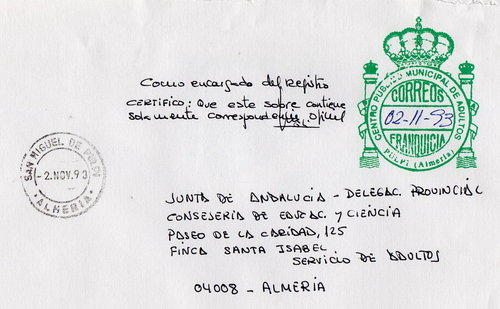 Como encargado del Registro
CERTIFICO: Que este sobre contiene
solamente correspondencia oficial
CENTRO PUBLICO MUNICIPAL DE ADULTOS
CORREOS
02-11-93
FRANQUICIA
PULPI (Almería)
SAN MIGUEL DE PULPI
- 2. NOV. 93
· ALMERIA ·
JUNTA DE ANDALUCIA - DELEGAC. PROVINCIAL
CONSEJERIA DE EDUCAC. Y CIENCIA
PASEO DE LA CARIDAD, 125
FINCA SANTA ISABEL
SERVICIO DE ADULTOS
04008 - ALMERIA